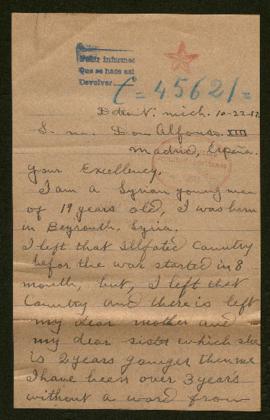 Pedir informes
Que se hace así
Devolver
C = 45621 =
Detroit. mich. 10-22-17
S. M. Don Alfonso XIII
Madrid, España
your Excellency,
I am a Syrian young man
of 19 years old, I was born
in Beyrouth. Syria.
I left that Illfated Country
befor the war started in 8
month, but, I left that
Country and there is left
my dear mother and
my dear sister which she
is 2 years younger then me
I have been over 3 years
without a word from